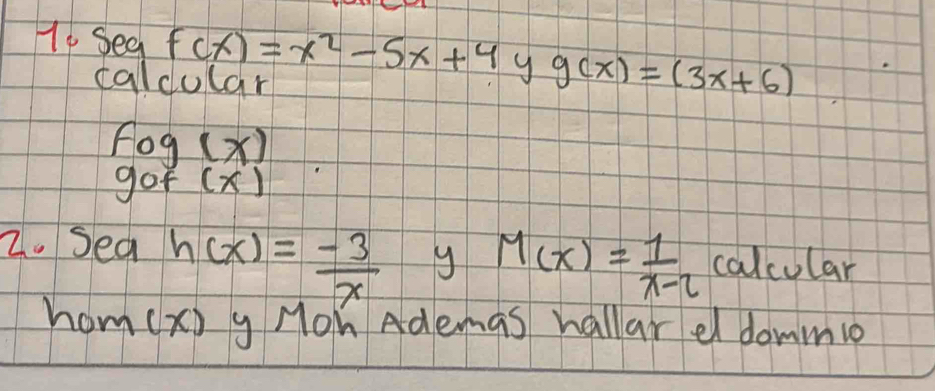 1. Sea f(x) = x² - 5x + 4 y g(x) = (3x + 6)
calcular
Fog (x)
gof (x)
2. Sea h(x) = -3/x y M(x) = 1/x-2 calcular
hom(x) y Moh Ademas hallar el dominio